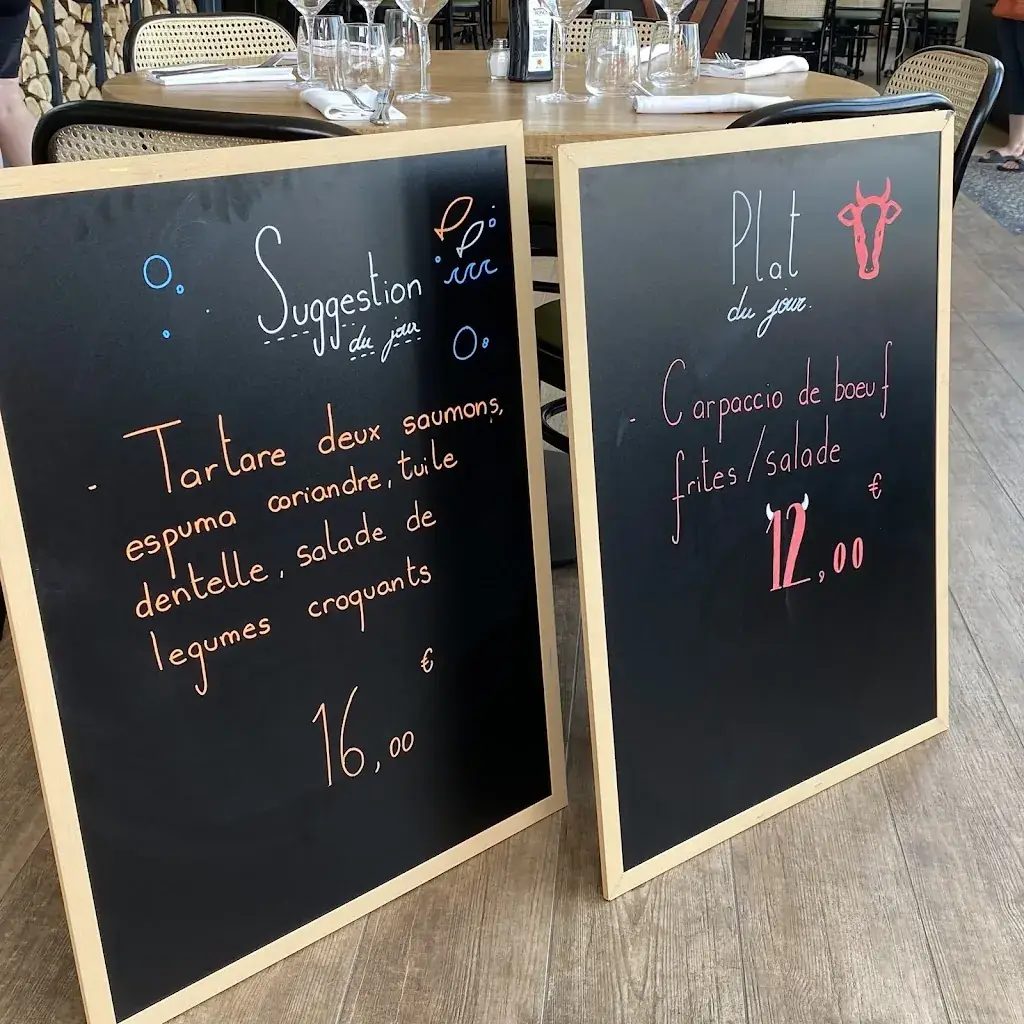 Suggestion
du jour
- Tartare deux saumons,
espuma coriandre, tuile
dentelle, salade de
legumes croquants
€
16,00
Plat
du jour.
- Carpaccio de boeuf
frites/salade
€
12,00